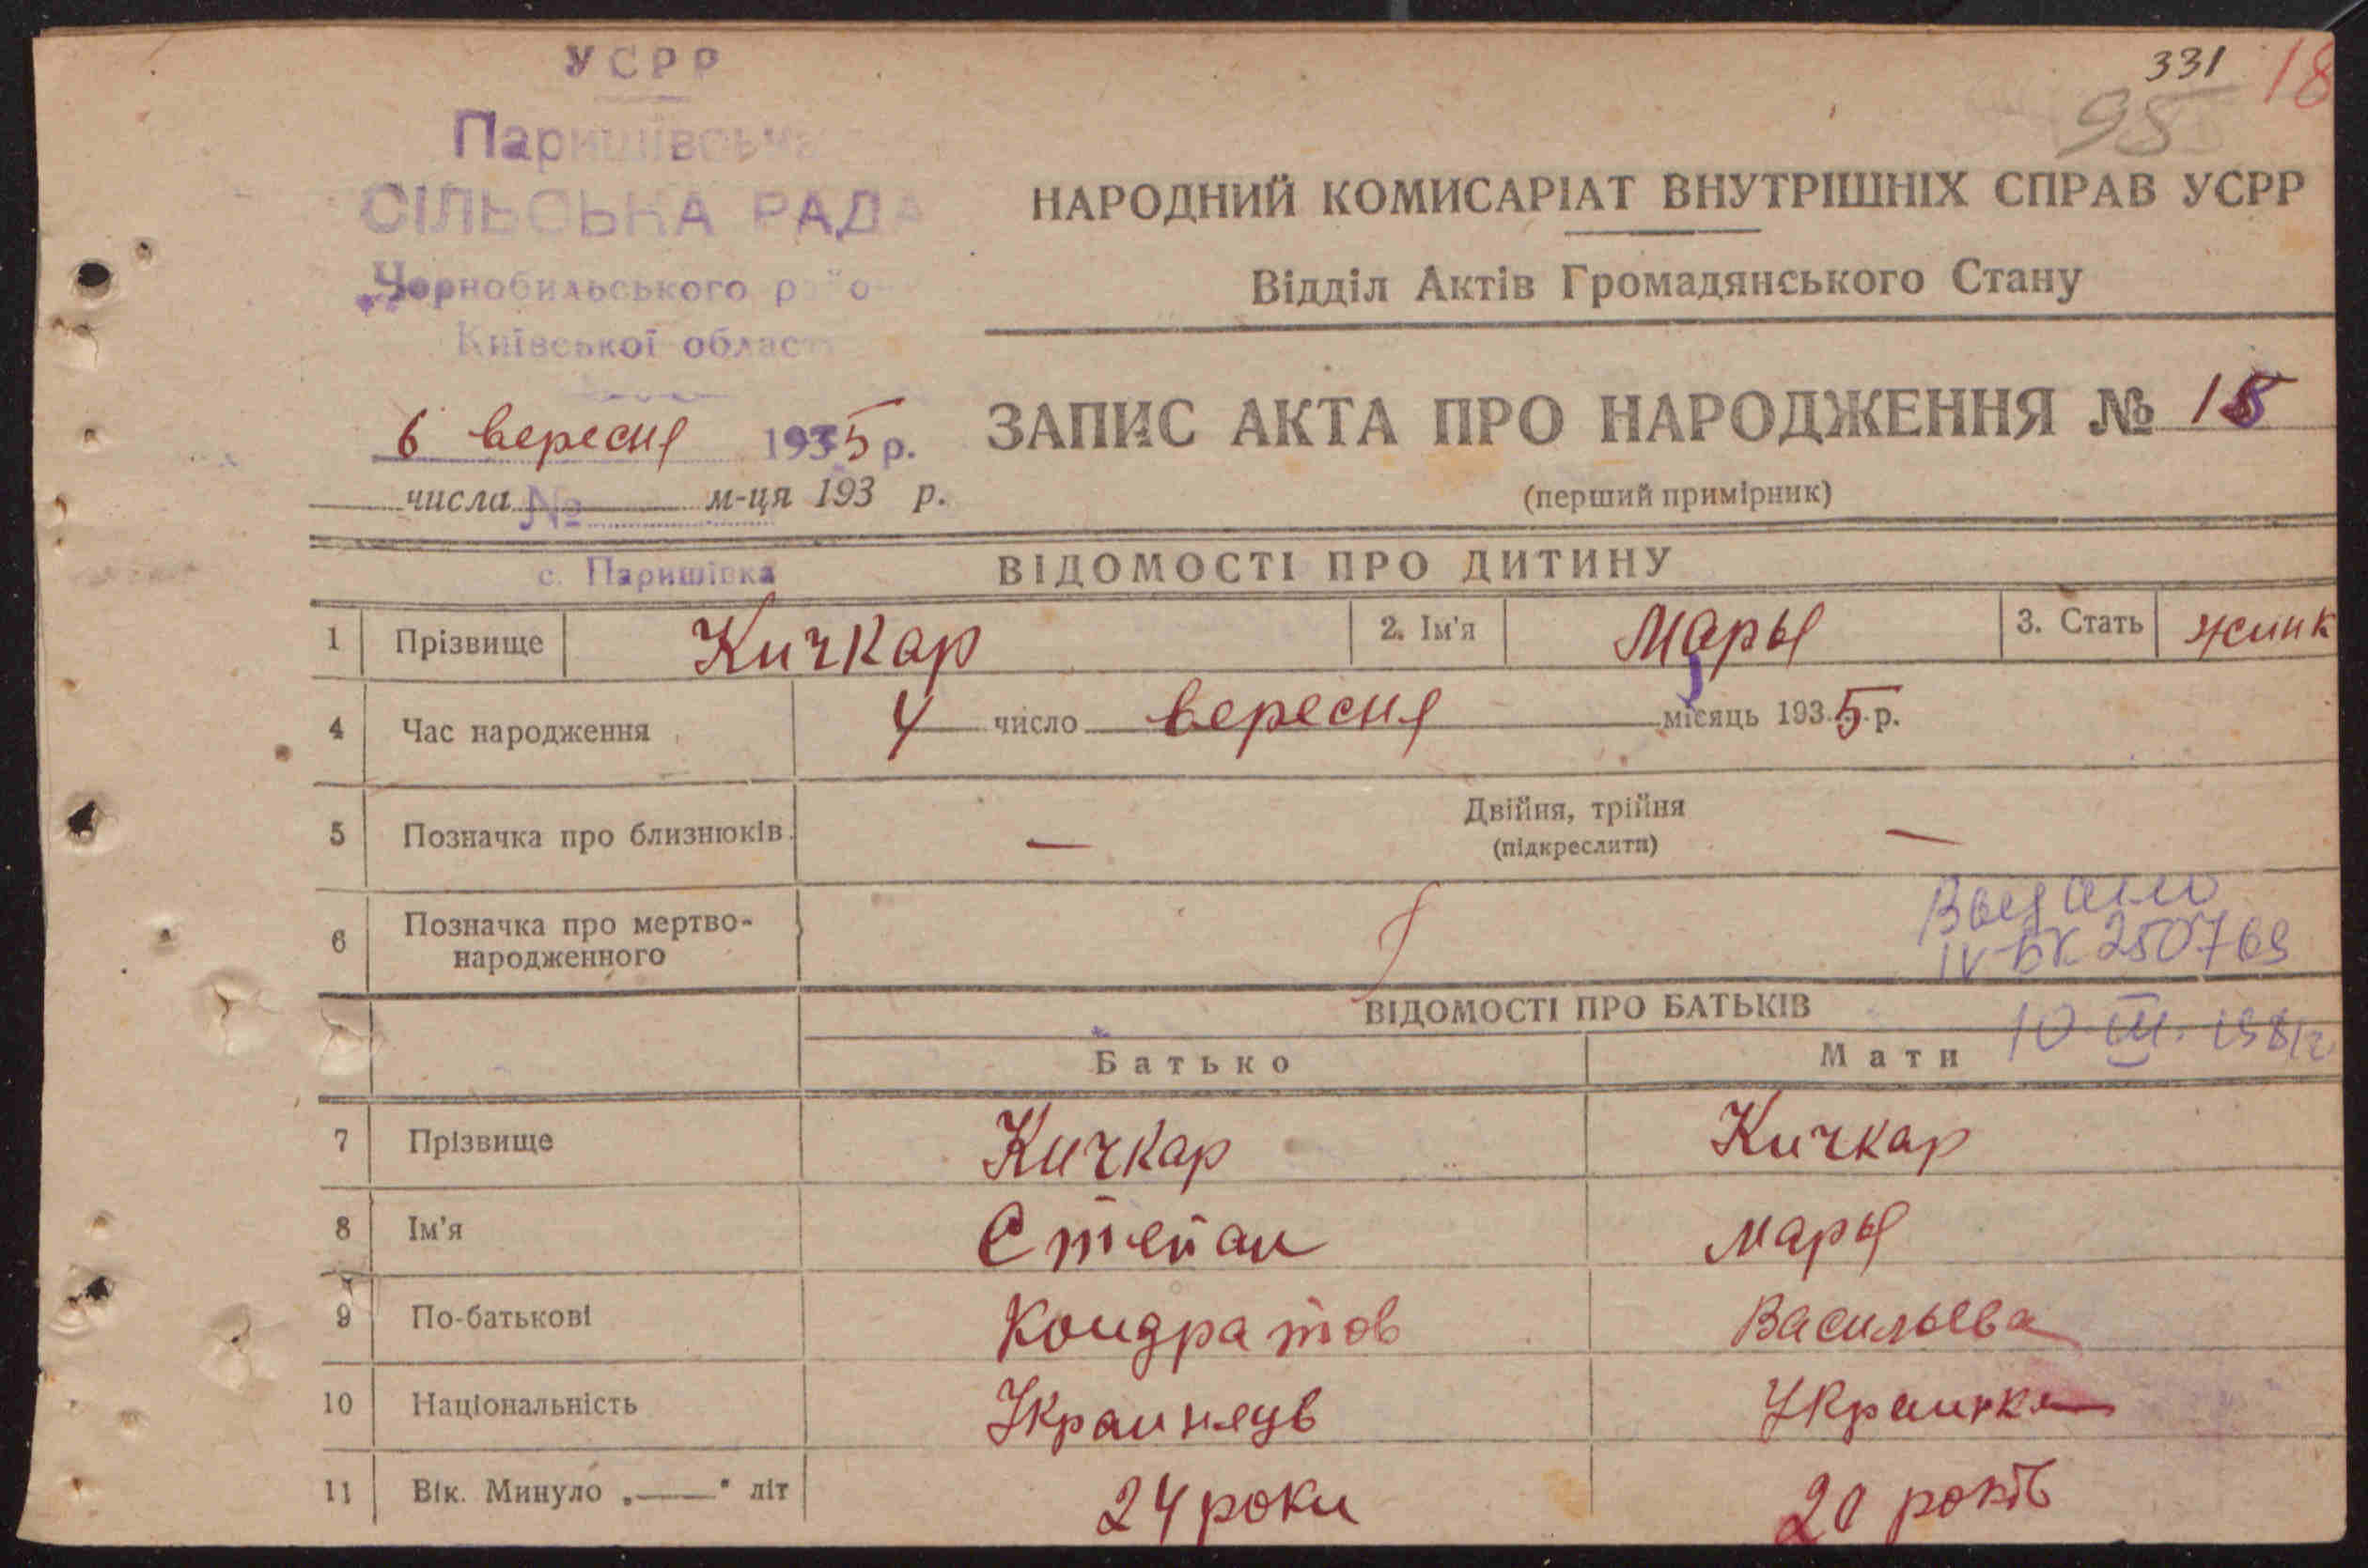 УСРР
331
18
95
Паришівська
СІЛЬСЬКА РАДА
Чорнобильського райо
Київської област
НАРОДНИЙ КОМИСАРІАТ ВНУТРІШНІХ СПРАВ УСРР
Відділ Актів Громадянського Стану
6 вересня 1935 р.
числа № м-ця 193 р.
ЗАПИС АКТА ПРО НАРОДЖЕННЯ № 15
(перший примірник)
с. Паришівка
ВІДОМОСТІ ПРО ДИТИНУ
1 Прізвище Кичкар 2. Ім'я Марья 3. Стать жинк
4 Час народження 4 число вересня місяць 1935 р.
5 Позначка про близнюків — Двійня, трійня —
(підкреслити)
6 Позначка про мертво-
народженного
Выдано
IV-БК 250769
10.III.1981г
ВІДОМОСТІ ПРО БАТЬКІВ
Батько Мати
7 Прізвище Кичкар Кичкар
8 Ім'я Степан Марья
9 По-батькові Кондратов Васильева
10 Національність Украинець Украинка
11 Вік. Минуло „——" літ 24 роки 20 років